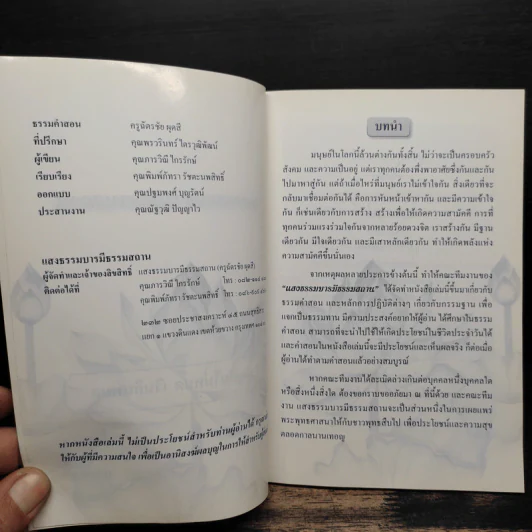 ธรรมคำสอน ครูฉัตรชัย ผุดสี
ที่ปรึกษา คุณพรวรินทร์ ไตรวุฒิพัฒน์
ผู้เขียน คุณภารวิณี ไกรรักษ์
เรียบเรียง คุณพิมพ์ภัทรา รัชตะนพสิทธิ์
ออกแบบ คุณปฐมพงศ์ บุญรัตน์
ประสานงาน คุณณัฐวุฒิ ปัญญาไว
แสงธรรมบารมีธรรมสถาน
ผู้จัดทำและเจ้าของลิขสิทธิ์ แสงธรรมบารมีธรรมสถาน (ครูฉัตรชัย ผุดสี)
ติดต่อได้ที่ คุณภารวิณี ไกรรักษ์ โทร :
คุณพิมพ์ภัทรา รัชตะนพสิทธิ์ โทร :
๒๓๒ ซอยประชาสงเคราะห์ ๑๕ ถนน
แยก ๑ แขวงดินแดง เขตห้วยขวาง กรุงเทพฯ
หากหนังสือเล่มนี้ ไม่เป็นประโยชน์สำหรับท่านผู้อ่านได้
ให้กับผู้ที่มีความสนใจ เพื่อเป็นอานิสงฆ์ผลบุญในการให้สำหรับ
บทนำ
มนุษย์ในโลกนี้ล้วนต่างกันทั้งสิ้น ไม่ว่าจะเป็นครอบครัว
สังคม และความเป็นอยู่ แต่เราทุกคนต้องพึ่งพาอาศัยซึ่งกันและกัน
ไปมาหาสู่กัน แต่ถ้าเมื่อไหร่ที่มนุษย์เราไม่เข้าใจกัน สิ่งเดียวที่จะ
กลับมาเชื่อมต่อกันได้ คือการหันหน้าเข้าหากัน และมีความเข้าใจ
กัน ก็เช่นเดียวกับการสร้าง สร้างเพื่อให้เกิดความสามัคคี การที่
ทุกคนร่วมแรงร่วมใจกันจากหลายร้อยดวงจิต เราสร้างกัน มีฐาน
เดียวกัน มีใจเดียวกัน และมีเสาหลักเดียวกัน ทำให้เกิดพลังแห่ง
ความสามัคคีขึ้นนั่นเอง
จากเหตุผลหลายประการข้างต้นนี้ ทำให้คณะทีมงานของ
"แสงธรรมบารมีธรรมสถาน" ได้จัดทำหนังสือเล่มนี้ขึ้นมาเกี่ยวกับ
ธรรมคำสอน และหลักการปฏิบัติต่างๆ เกี่ยวกับกรรมฐาน เพื่อ
แจกเป็นธรรมทาน มีความประสงค์อยากให้ผู้อ่าน ได้ศึกษาในธรรม
คำสอน สามารถที่จะนำไปใช้ให้เกิดประโยชน์ในชีวิตประจำวันได้
และคำสอนในหนังสือเล่มนี้จะมีประโยชน์และเห็นผลจริง ก็ต่อเมื่อ
ผู้อ่านได้ทำตามคำสอนแล้วอย่างสมบูรณ์
หากคณะทีมงานได้ละเมิดล่วงเกินต่อบุคคลหนึ่งบุคคลใด
หรือสิ่งหนึ่งสิ่งใด ต้องขอกราบขออภัยมา ณ ที่นี้ด้วย และคณะทีม
งาน แสงธรรมบารมีธรรมสถานจะเป็นส่วนหนึ่งในการเผยแพร่
พระพุทธศาสนาให้กับชาวพุทธสืบไป ประโยชน์และความสุข
ตลอดกาลนานเทอญ